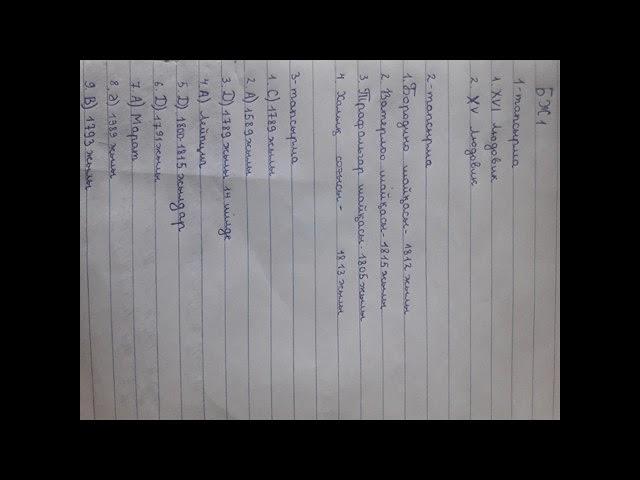 БЖ1
1-тапсырма
1. XVI Людовик
2. XV Людовик
2-тапсырма
1. Бородино шайқасы- 1812 жылы
2. Ватерлоо шайқасы- 1815 жылы
3 Трафальгар шайқасы- 1805 жылы
4 Халық соғысы- 1813 жылы
3-тапсырма
1. С) 1789 жылы
2 А) 1589 жылы
3. D) 1789 жылы 14 шілде
4 А) Лейпциг
5. D) 1800-1815 жылдар
6. D) 1791 жылы
7. А) Марат
8. Ә) 1989 жылы
9. В) 1793 жылы